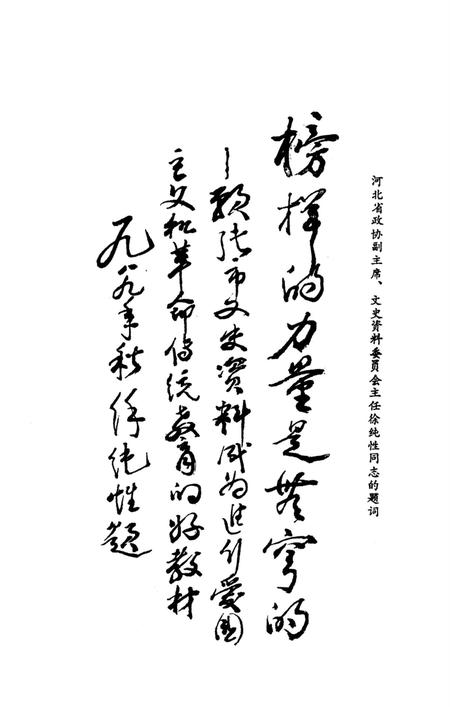 河北省政协副主席、文史资料委员会主任徐纯性同志的题词
榜样的力量是无穷的
—愿张市文史资料成为进行爱国
主义和革命传统教育的好教材
一九八九年秋徐纯性题